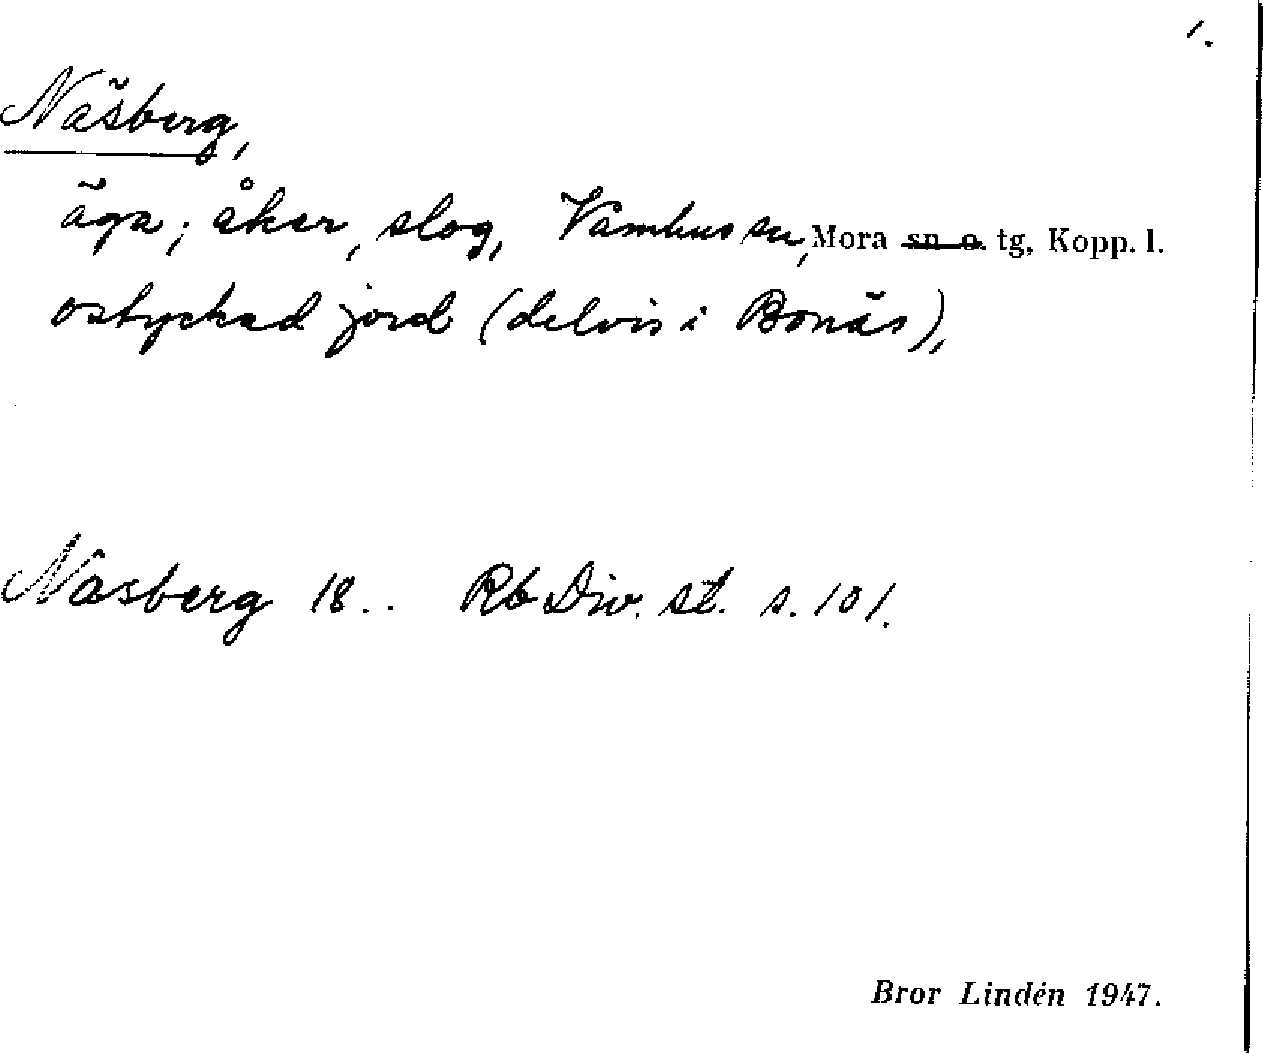 1.
Näsberg,
äga; åker, slog, Våmhus sn, Mora sn o. tg, Kopp. l.
ostyckad jord (delvis i Bonäs),
Näsberg 18.. Rb Div. st. s. 101.
Bror Lindén 1947.